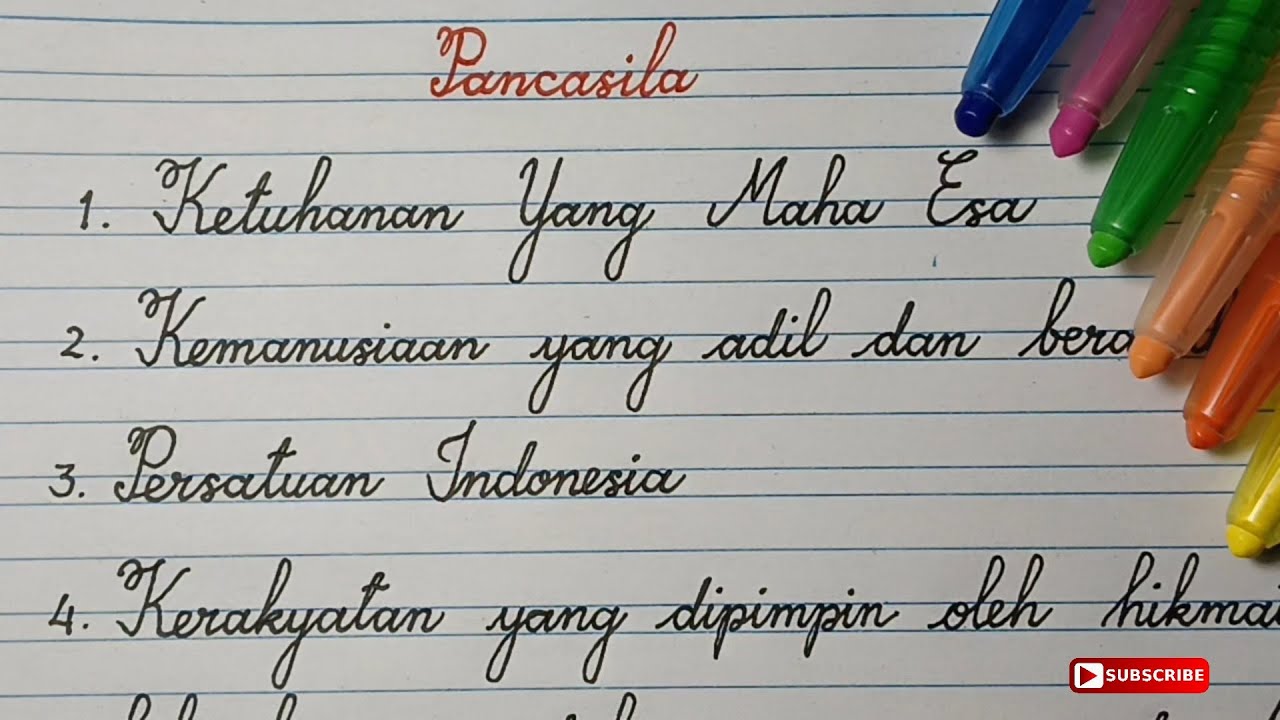 Pancasila
1. Ketuhanan Yang Maha Esa
2. Kemanusiaan yang adil dan bera
3. Persatuan Indonesia
4. Kerakyatan yang dipimpin oleh hikma
SUBSCRIBE